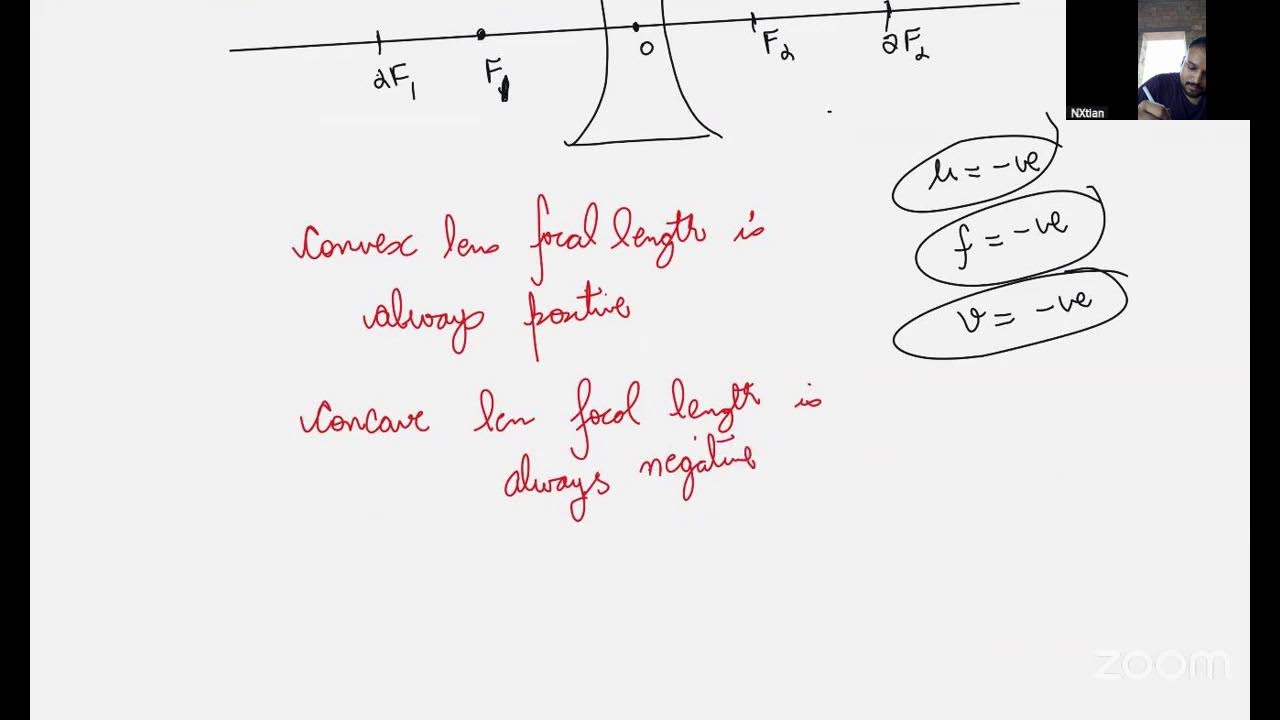 2F₁ F₁ O F₂ 2F₂
NXtian
u = -ve
f = -ve
v = -ve
convex lens focal length is
always positive
concave len focal length is
always negative
zoom